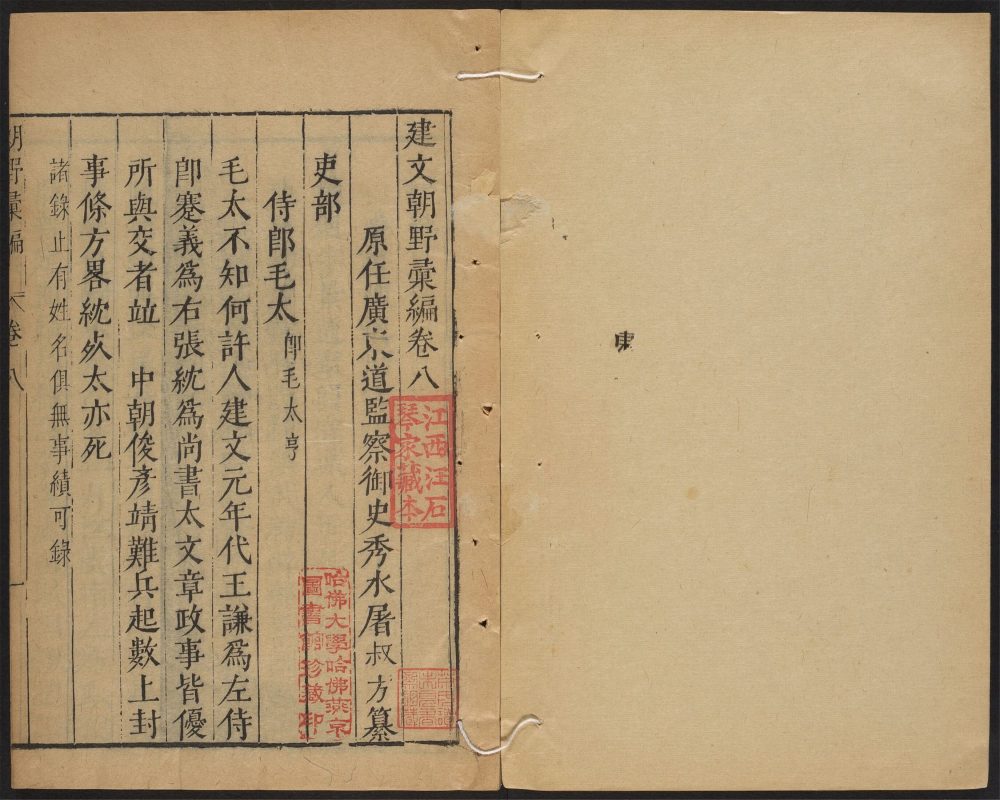 東
建文朝野彙編卷八
原任廣東道監察御史秀水屠叔方纂
吏部
侍郎毛太 即毛太亨
毛太不知何許人建文元年代王謙爲左侍
郎蹇義爲右張紞爲尚書太文章政事皆優
所與交者竝 中朝俊彥靖難兵起數上封
事條方畧紞死太亦死
諸錄止有姓名俱無事績可錄
朝野彙編 卷八 一
江西汪石
琴家藏本
哈佛大學哈佛燕京
圖書館珍藏印